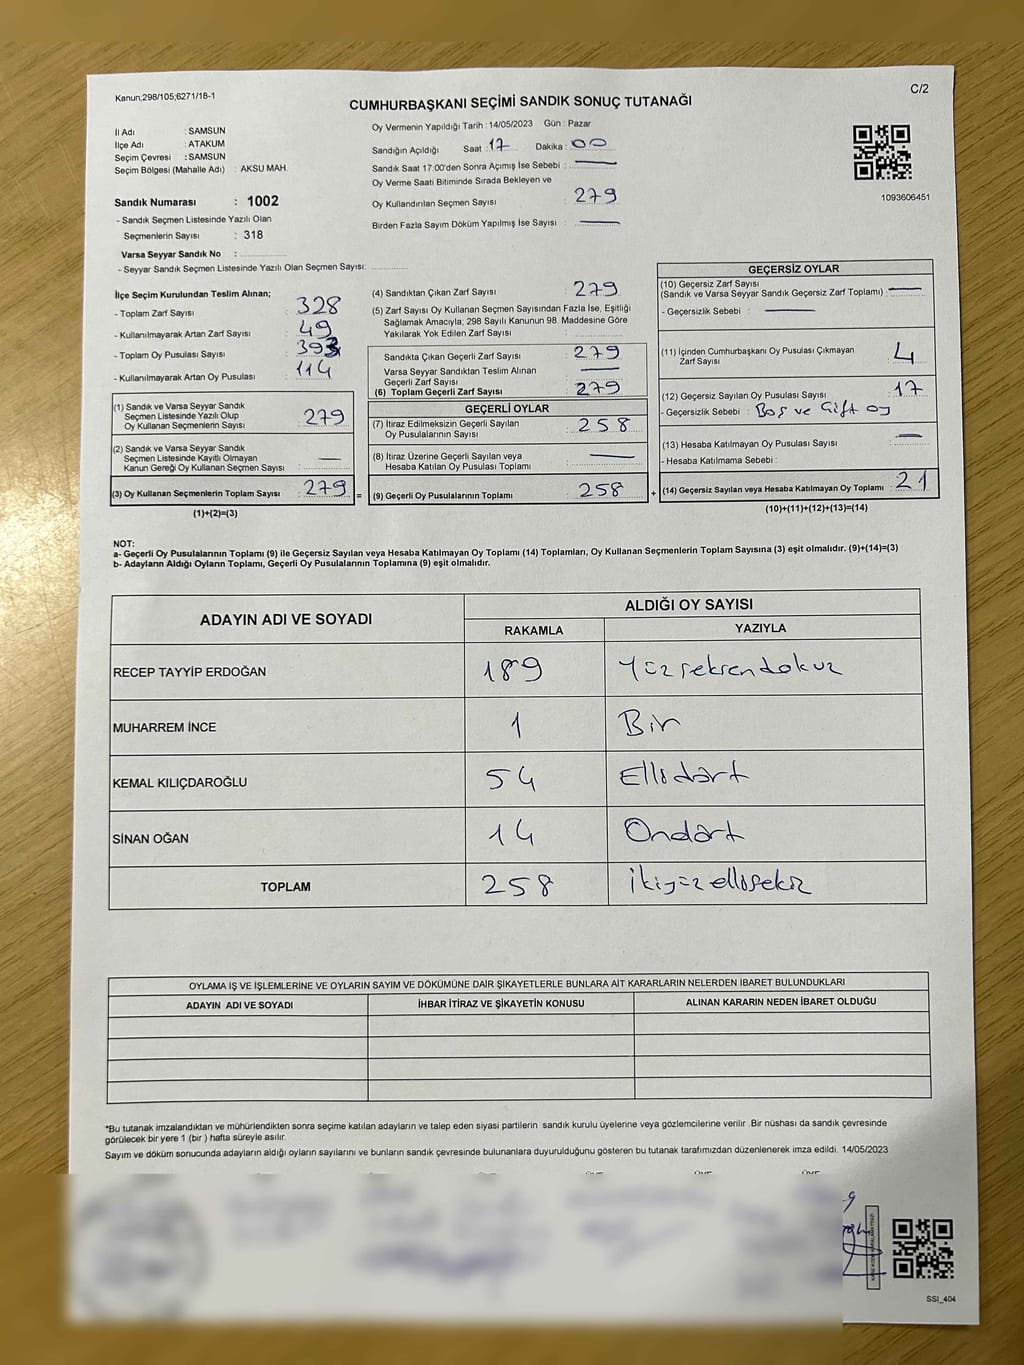 Kanun;298/105;6271/18-1
C/2
CUMHURBAŞKANI SEÇİMİ SANDIK SONUÇ TUTANAĞI
İl Adı : SAMSUN
İlçe Adı : ATAKUM
Seçim Çevresi : SAMSUN
Seçim Bölgesi (Mahalle Adı) : AKSU MAH.
Sandık Numarası : 1002
- Sandık Seçmen Listesinde Yazılı Olan
Seçmenlerin Sayısı : 318
Varsa Seyyar Sandık No :
- Seyyar Sandık Seçmen Listesinde Yazılı Olan Seçmen Sayısı:
Oy Vermenin Yapıldığı Tarih : 14/05/2023 Gün : Pazar
Sandığın Açıldığı Saat : 17 Dakika : 00
Sandık Saat 17:00'den Sonra Açımış İse Sebebi : —
Oy Verme Saati Bitiminde Sırada Bekleyen ve
Oy Kullandırılan Seçmen Sayısı : 279
Birden Fazla Sayım Döküm Yapılmış İse Sayısı : —
1093606451
İlçe Seçim Kurulundan Teslim Alınan;
- Toplam Zarf Sayısı : 328
- Kullanılmayarak Artan Zarf Sayısı : 49
- Toplam Oy Pusulası Sayısı : 393
- Kullanılmayarak Artan Oy Pusulası : 114
(1) Sandık ve Varsa Seyyar Sandık
Seçmen Listesinde Yazılı Olup
Oy Kullanan Seçmenlerin Sayısı : 279
(2) Sandık ve Varsa Seyyar Sandık
Seçmen Listesinde Kayıtlı Olmayan
Kanun Gereği Oy Kullanan Seçmen Sayısı : —
(3) Oy Kullanan Seçmenlerin Toplam Sayısı : 279 =
(1)+(2)=(3)
(4) Sandıktan Çıkan Zarf Sayısı : 279
(5) Zarf Sayısı Oy Kullanan Seçmen Sayısından Fazla İse, Eşitliği
Sağlamak Amacıyla, 298 Sayılı Kanunun 98. Maddesine Göre
Yakılarak Yok Edilen Zarf Sayısı :
Sandıkta Çıkan Geçerli Zarf Sayısı : 279
Varsa Seyyar Sandıktan Teslim Alınan
Geçerli Zarf Sayısı : —
(6) Toplam Geçerli Zarf Sayısı : 279
GEÇERLİ OYLAR
(7) İtiraz Edilmeksizin Geçerli Sayılan
Oy Pusulalarının Sayısı : 258
(8) İtiraz Üzerine Geçerli Sayılan veya
Hesaba Katılan Oy Pusulası Toplamı : —
(9) Geçerli Oy Pusulalarının Toplamı : 258 +
GEÇERSİZ OYLAR
(10) Geçersiz Zarf Sayısı
(Sandık ve Varsa Seyyar Sandık Geçersiz Zarf Toplamı) : —
- Geçersizlik Sebebi : —
(11) İçinden Cumhurbaşkanı Oy Pusulası Çıkmayan
Zarf Sayısı : 4
(12) Geçersiz Sayılan Oy Pusulası Sayısı : 17
- Geçersizlik Sebebi : Boş ve Çift oy
(13) Hesaba Katılmayan Oy Pusulası Sayısı : —
- Hesaba Katılmama Sebebi :
(14) Geçersiz Sayılan veya Hesaba Katılmayan Oy Toplamı : 21
(10)+(11)+(12)+(13)=(14)
NOT:
a- Geçerli Oy Pusulalarının Toplamı (9) ile Geçersiz Sayılan veya Hesaba Katılmayan Oy Toplamı (14) Toplamları, Oy Kullanan Seçmenlerin Toplam Sayısına (3) eşit olmalıdır. (9)+(14)=(3)
b- Adayların Aldığı Oyların Toplamı, Geçerli Oy Pusulalarının Toplamına (9) eşit olmalıdır.
ADAYIN ADI VE SOYADI ALDIĞI OY SAYISI
RAKAMLA YAZIYLA
RECEP TAYYİP ERDOĞAN 189 Yüzseksendokuz
MUHARREM İNCE 1 Bir
KEMAL KILIÇDAROĞLU 54 Ellidört
SİNAN OĞAN 14 Ondört
TOPLAM 258 İkiyüzellisekiz
OYLAMA İŞ VE İŞLEMLERİNE VE OYLARIN SAYIM VE DÖKÜMÜNE DAİR ŞİKAYETLERLE BUNLARA AİT KARARLARIN NELERDEN İBARET BULUNDUKLARI
ADAYIN ADI VE SOYADI İHBAR İTİRAZ VE ŞİKAYETİN KONUSU ALINAN KARARIN NEDEN İBARET OLDUĞU
*Bu tutanak imzalandıktan ve mühürlendikten sonra seçime katılan adayların ve talep eden siyasi partilerin sandık kurulu üyelerine veya gözlemcilerine verilir .Bir nüshası da sandık çevresinde
görülecek bir yere 1 (bir ) hafta süreyle asılır.
Sayım ve döküm sonucunda adayların aldığı oyların sayılarını ve bunların sandık çevresinde bulunanlara duyurulduğunu gösteren bu tutanak tarafımızdan düzenlenerek imza edildi. 14/05/2023
SSI_404